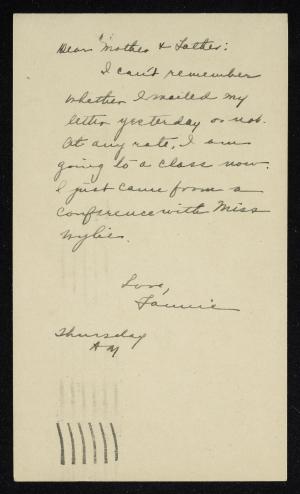 Dear Mother & Father:
I can't remember
whether I mailed my
letter yesterday or not.
At any rate, I am
going to a class now.
I just came from a
conference with Miss
Wylie.
Love,
Fannie
Thursday
AM